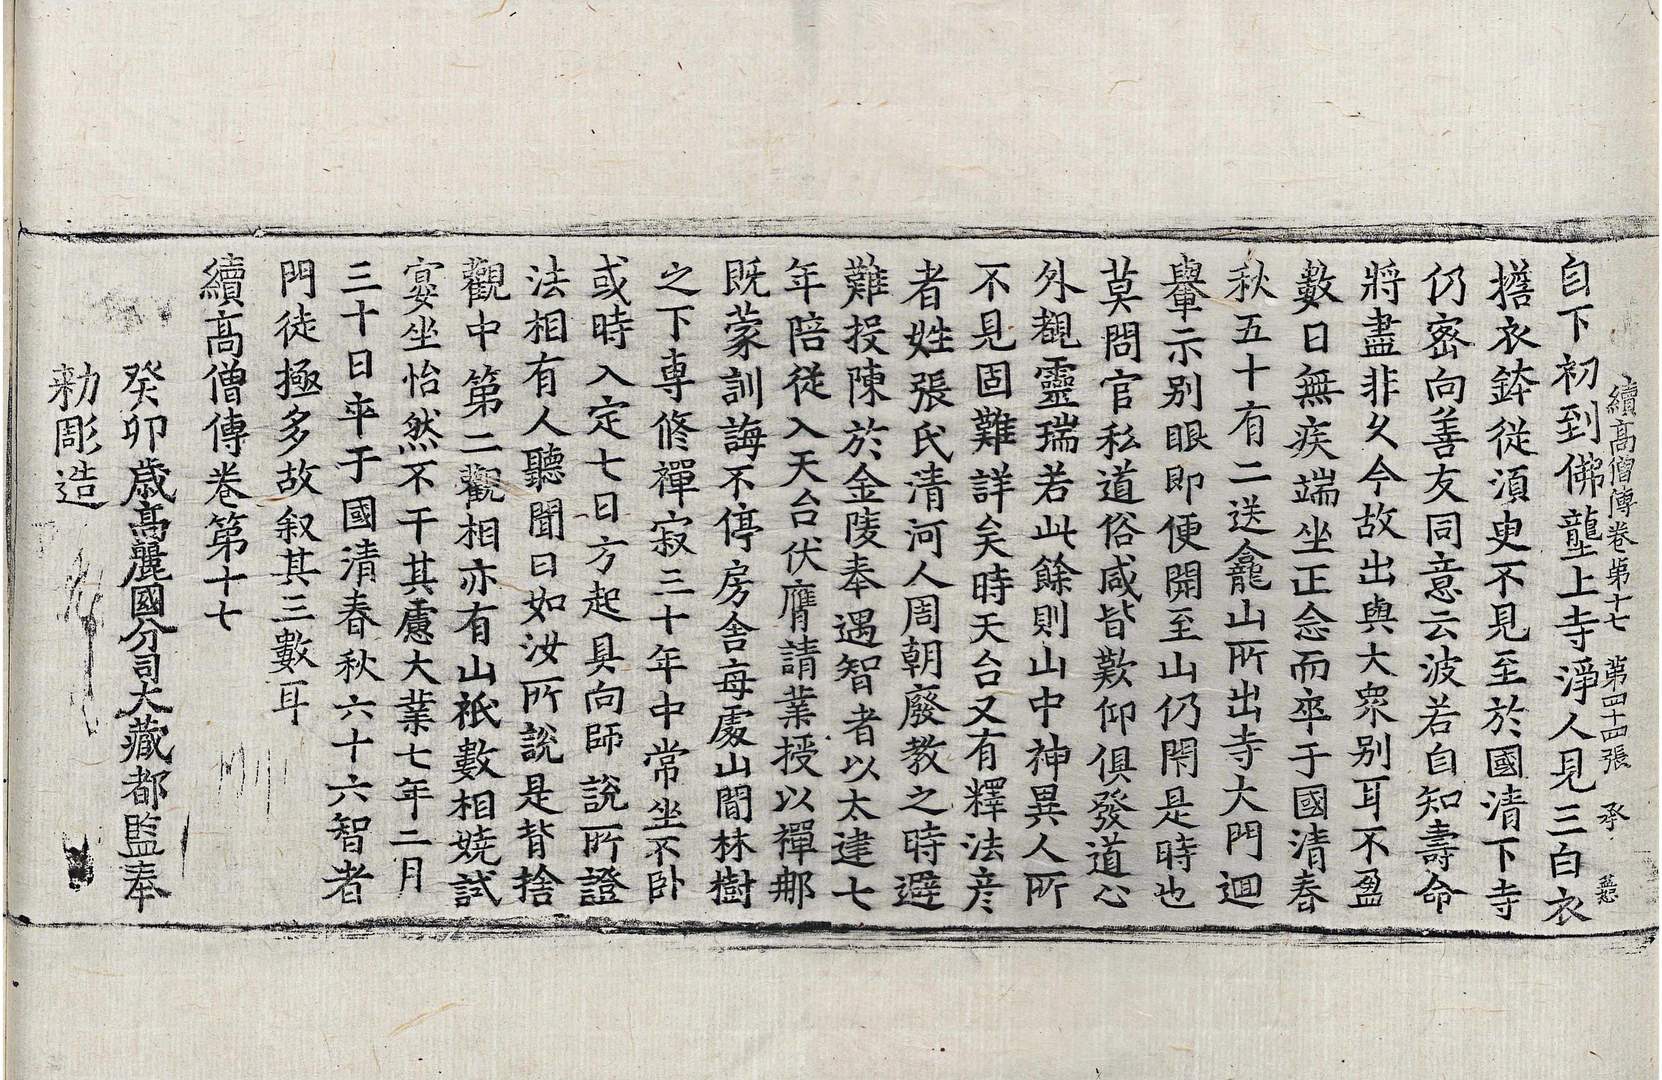 續高僧傳卷第十七 第四十四張 承
自下初到佛壟上寺淨人見三白衣
擔衣鉢從須臾不見至於國清下寺
仍密向善友同意云波若自知壽命
將盡非久今故出與大衆别耳不盈
數日無疾端坐正念而卒于國清春
秋五十有二送龕山所出寺大門迴
轝示别眼即便開至山仍閇是時也
莫問官私道俗咸皆歎仰俱發道心
外覩靈瑞若此餘則山中神異人所
不見固難詳矣時天台又有釋法彦
者姓張氏清河人周朝廢教之時避
難投陳於金陵奉遇智者以太建七
年陪從入天台伏膺請業授以禪那
既蒙訓誨不停房舍每處山間林樹
之下專修禪寂三十年中常坐不卧
或時入定七日方起具向師說所證
法相有人聽聞曰如汝所說是背捨
觀中第二觀相亦有山祇數相嬈試
宴坐怡然不干其慮大業七年二月
三十日卒于國清春秋六十六智者
門徒極多故叙其三數耳
續高僧傳卷第十七
癸卯歲高麗國分司大藏都監奉
勑彫造